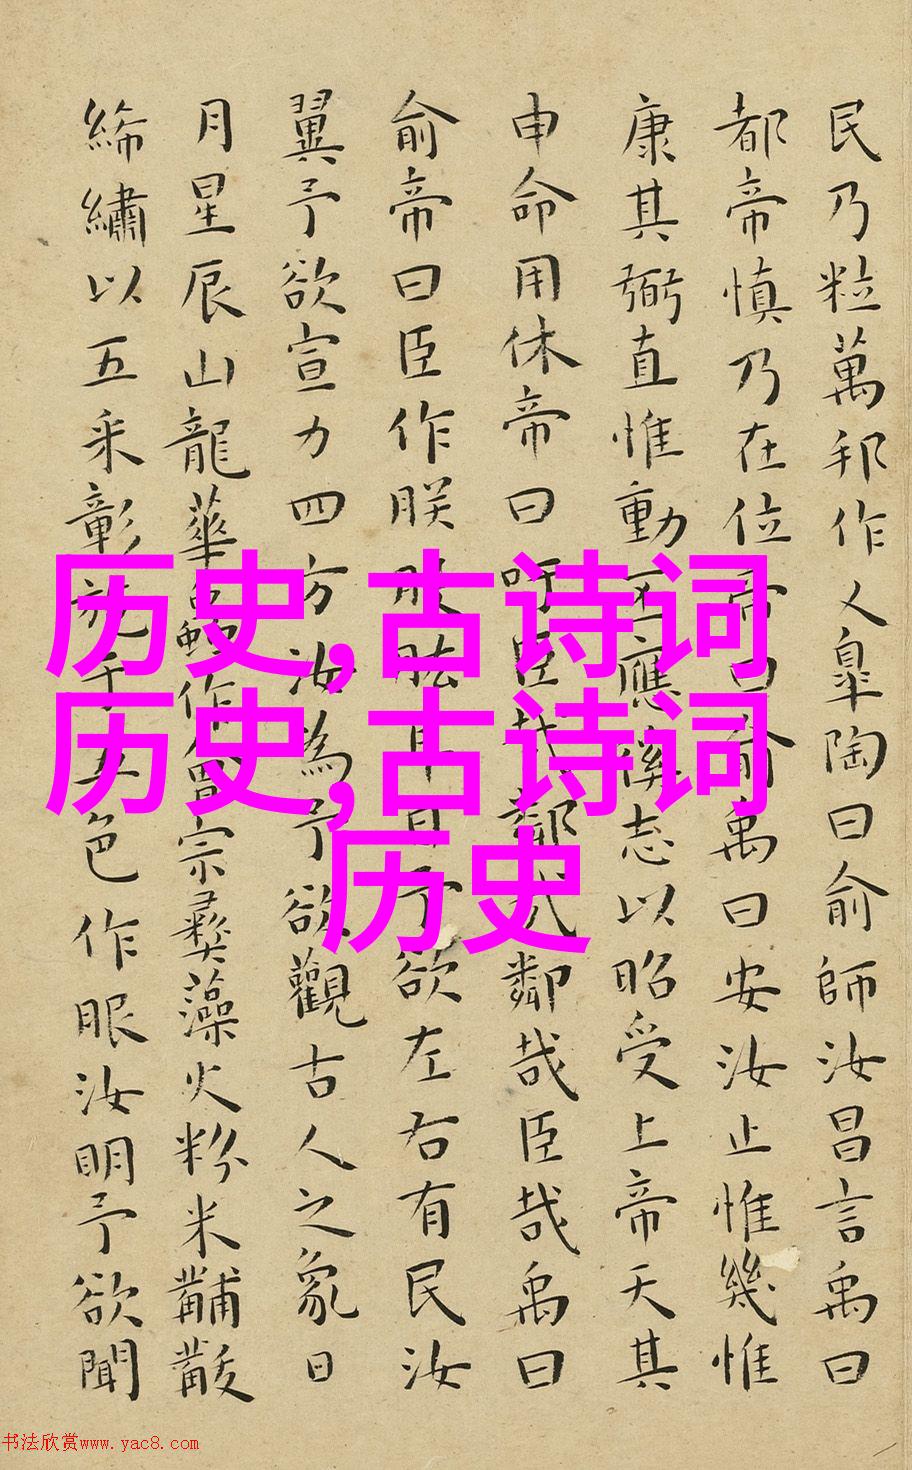 民乃粒萬邦作乂皐陶曰俞師汝昌言禹曰
都帝慎乃在位帝曰俞禹曰安汝止惟幾惟
康其弼直惟動丕應徯志以昭受上帝天其
申命用休帝曰吁臣哉鄰哉鄰哉臣哉禹曰
俞帝曰臣作朕股肱耳目予欲左右有民汝
翼予欲宣力四方汝為予欲觀古人之象日
月星辰山龍華蟲作會宗彝藻火粉米黼黻
絺繡以五采彰施于五色作服汝明予欲聞
历史,古诗词
历史,古诗词
历史
书法欣赏www.yac8.com